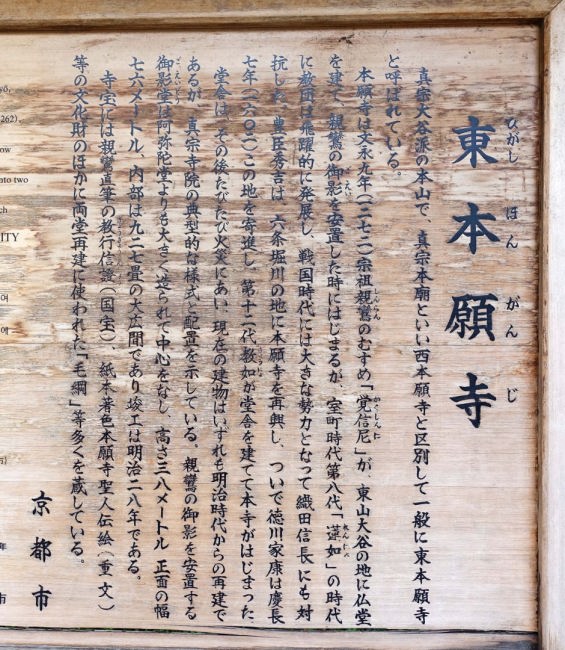 東本願寺
ひがし ほん がん じ
真宗大谷派の本山で、真宗本廟といい西本願寺と区別して一般に東本願寺
と呼ばれている。
本願寺は文永九年(一二七二)宗祖親鸞のむすめ「覚信尼」が、東山大谷の地に仏堂
を建て、親鸞の御影を安置した時にはじまるが、室町時代第八代「蓮如」の時代
に教団は飛躍的に発展し、戦国時代には大きな勢力となって織田信長にも対
抗した。豊臣秀吉は、六条堀川の地に本願寺を再興し、ついで徳川家康は慶長
七年(一六〇二)この地を寄進し、第十二代教如が堂舎を建てて本寺がはじまった。
堂舎は、その後たびたび火災にあい、現在の建物はいずれも明治時代からの再建で
あるが、真宗寺院の典型的な様式と配置を示している。親鸞の御影を安置する
御影堂は阿弥陀堂よりも大きく造られて中心をなし、高さ三八メートル、正面の幅
七六メートル、内部は九二七畳の大広間であり竣工は明治二八年である。
寺宝には親鸞直筆の教行信證(国宝)、紙本著色本願寺聖人伝絵(重文)
等の文化財のほかに両堂再建に使われた「毛綱」等多くを蔵している。
京都市
262),
ow
nto two
ch
ITY
여
에